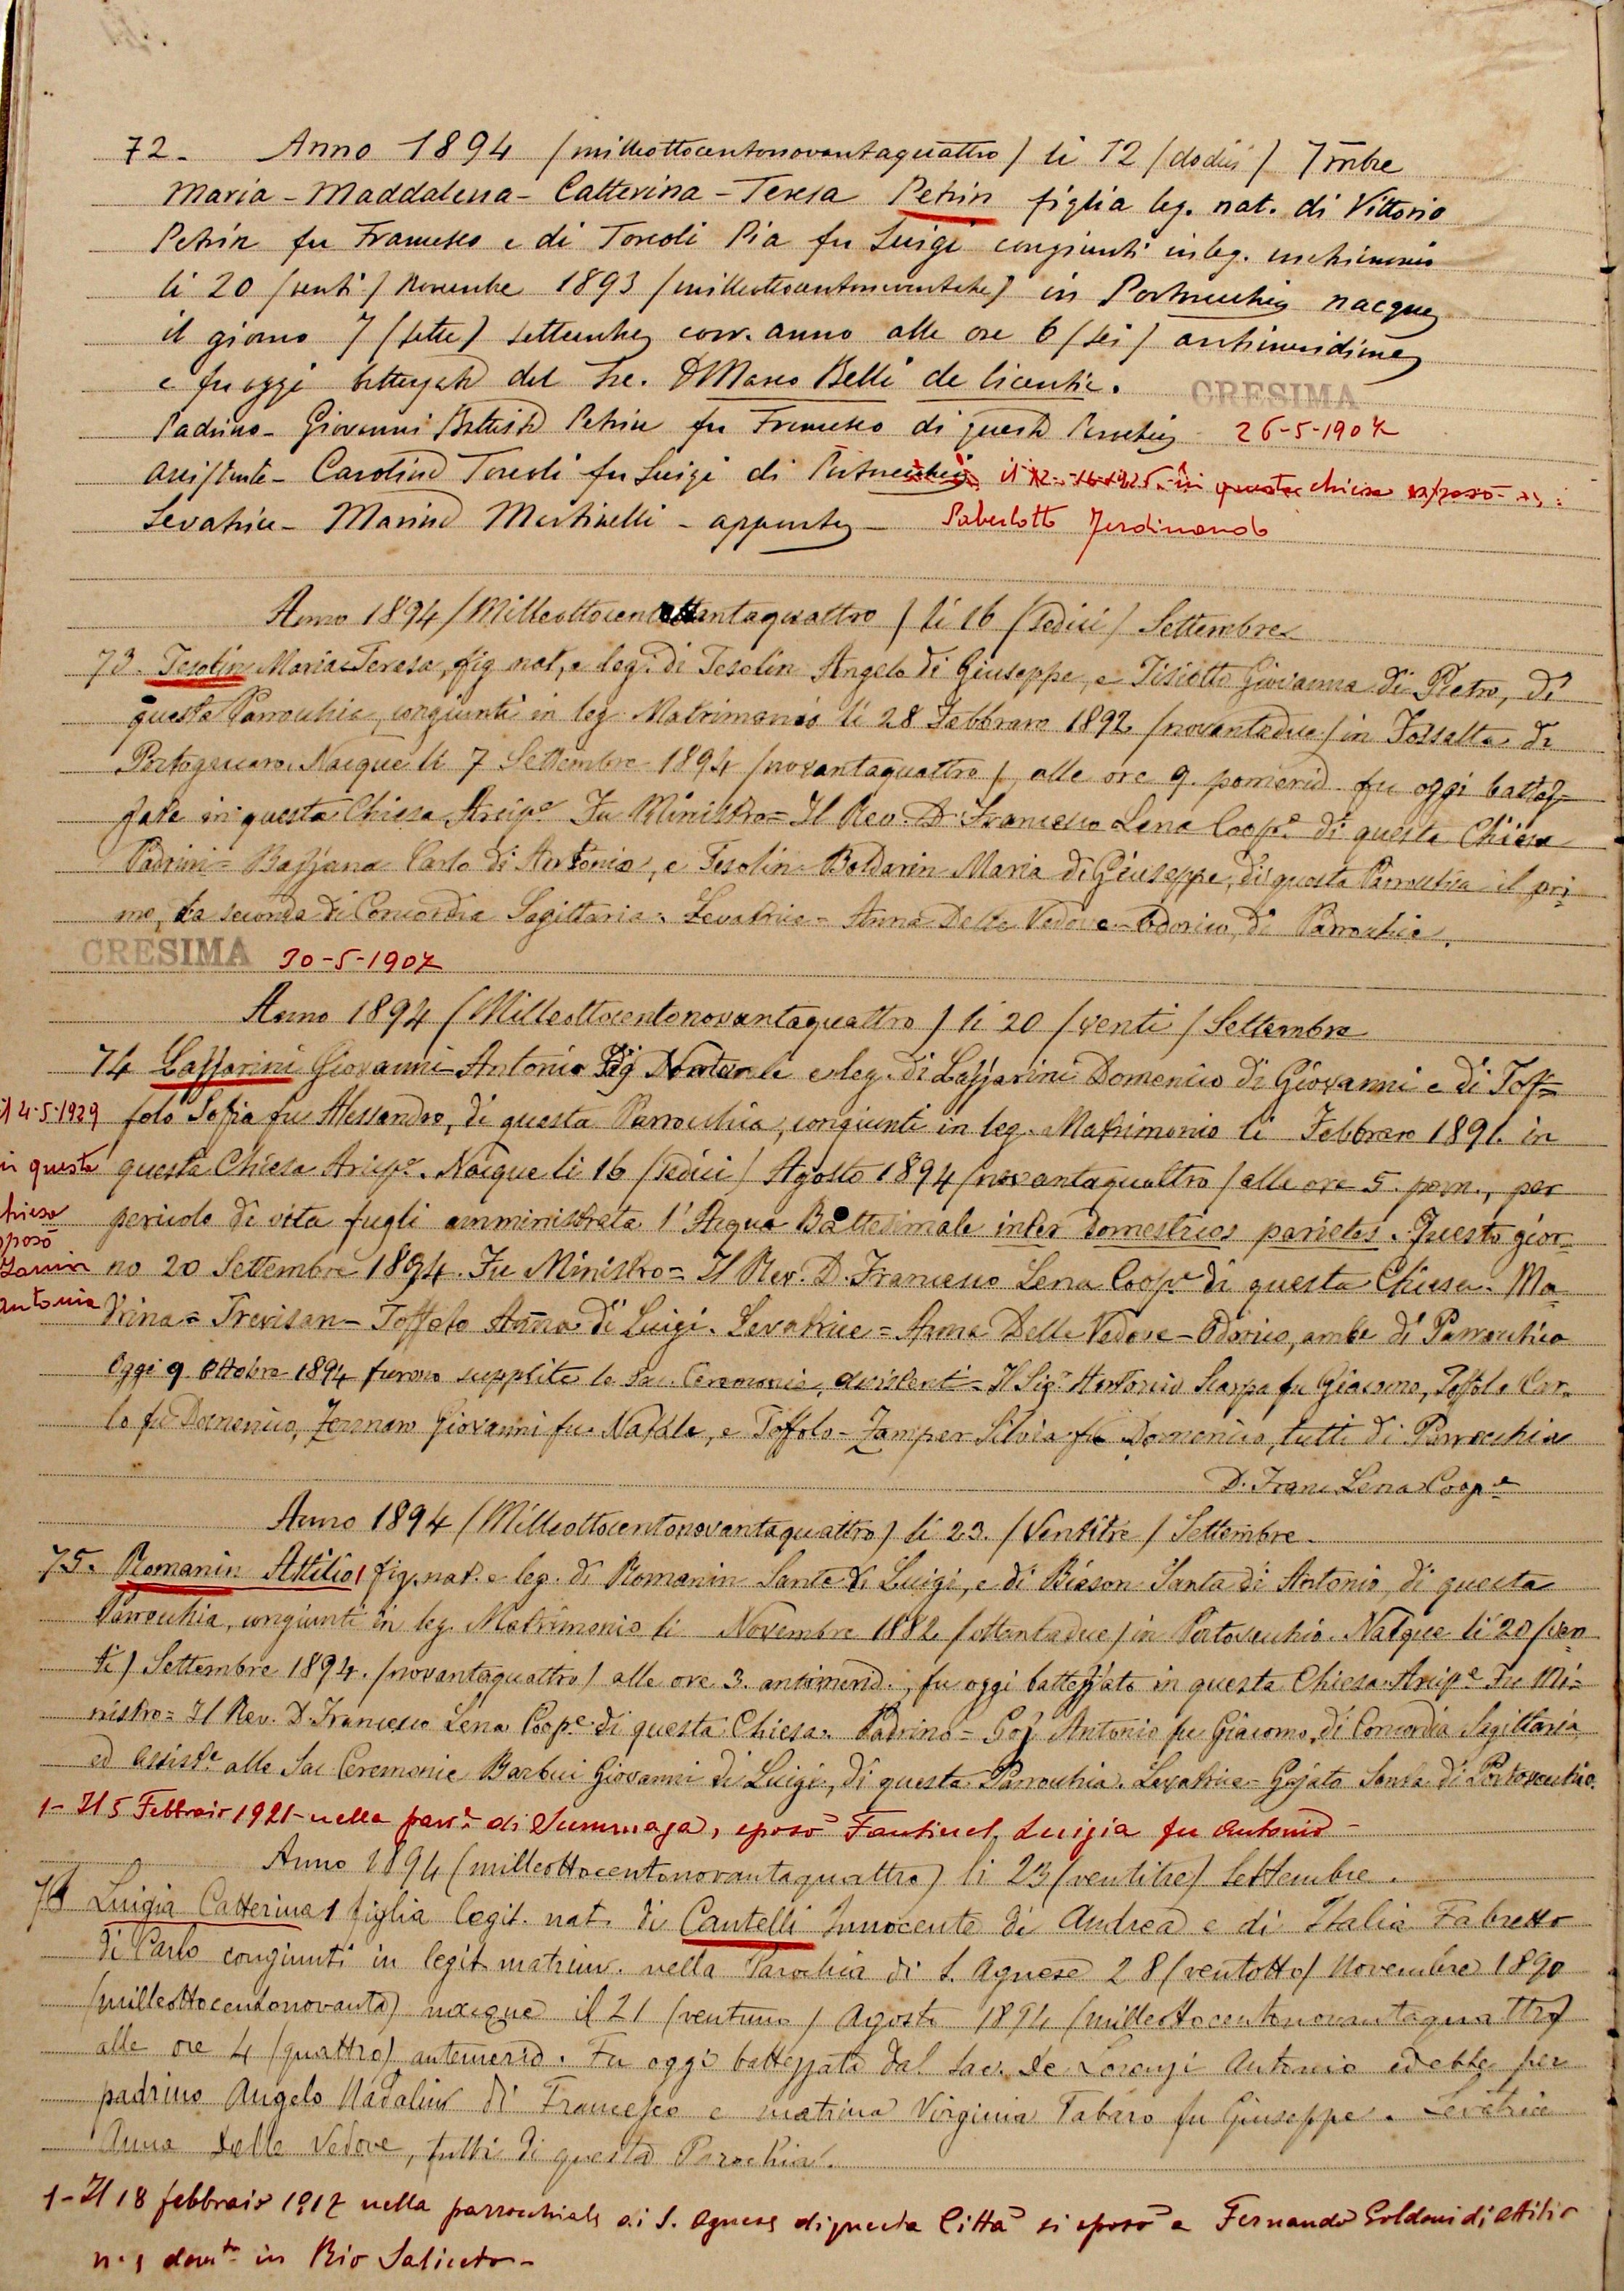 72. Anno 1894 /milleottocentonovantaquattro/ li 12 /dodici/ 7mbre
Maria - Maddalena - Catterina - Teresa Petrin figlia leg. nat. di Vittorio
Petrin fu Francesco e di Torcoli Pia fu Luigi congiunti in leg. matrimonio
li 20 /venti/ Novembre 1893 /milleottocentonovantatre/ in Portovecchio nacque
il giorno 7 /sette/ settembre corr. anno alle ore 6 /sei/ antimeridiane
e fu oggi battezzata dal Sac. D Marco Belli de licentia.
CRESIMA
Padrino - Giovanni Battista Petrin fu Francesco di questa Parrochia 26-5-1907
assistente - Carolina Torcoli fu Luigi di in questa chiesa sposò
Levatrice - Marina Martinelli - approvata - Sabertotto Ferdinando
Anno 1894 /Milleottocentonovantaquattro/ li 16 /sedici/ Settembre
73. Tesolin Maria-Teresa, fig nat, e leg. di Tesolin Angelo di Giuseppe, e Tisiotto Giovanna di Pietro, di
questa Parrochia, congiunti in leg. Matrimonio li 28 Febbraro 1892 /novantadue/ in Fossalta di
Portogruaro. Nacque li 7 Settembre 1894 /novantaquattro/, alle ore 9. pomerid. fu oggi battez=
zata in questa Chiesa Arcip.e Fu Ministro= Il Rev. D. Francesco Lena Coop.e di questa Chiesa
Padrini= Bazzana Carlo di Antonio, e Tesolin-Boldarin Maria di Giuseppe, di questa Parrochia il pri=
mo, la seconda di Concordia Sagittaria. Levatrice= Anna Delle Vedove-Odorico, di Parrochia.
CRESIMA 30-5-1907
Anno 1894 /Milleottocentonovantaquattro/ li 20 /venti/ Settembre
74 Lazzarini Giovanni-Antonio Fig Naturale e leg. di Lazzarini Domenico di Giovanni e di Tof=
il 4-5-1929 folo Sofia fu Alessandro, di questa Parrochia, congiunti in leg. Matrimonio li Febbraro 1891. in
in questa questa Chiesa Arcip.e. Nacque li 16 /sedici/ Agosto 1894 /novantaquattro/ alle ore 5. pom., per
chiesa pericolo di vita fugli amministrata l'Acqua Battesimale inter domesticos parietes. Questo gior=
sposò
Zanin no 20 Settembre 1894. Fu Ministro= Il Rev. D. Francesco Lena Coop.e di questa Chiesa. Ma=
Antonia drina= Trevisan-Toffolo Anna di Luigi. Levatrice= Anna Delle Vedove-Odorico, ambe di Parrochia
Oggi 9. Ottobre 1894 furono supplite le Sac. Ceremonie, assistenti= Il Sig.r Antonio Scarpa fu Giacomo, Toffolo Car=
lo fu Domenico, Giovanni fu Natale, e Toffolo-Zamper Silvia fu Domenico, tutti di Parrochia
D. Franc Lena Coop.e
Anno 1894 /Milleottocentonovantaquattro/ li 23. /Ventitre/ Settembre.
75. Romanin Attilio 1 fig. nat. e leg. di Romanin Sante di Luigi, e di Biason Santa di Antonio, di questa
Parrochia, congiunti in leg. Matrimonio li Novembre 1882 /ottantadue/ in Portovecchio. Nacque li 20 /ven
ti/ Settembre 1894. /novantaquattro/ alle ore 3. antimerid., fu oggi battezzato in questa Chiesa Arcip.e Fu Mi=
nistro= Il Rev. D. Francesco Lena Coop.e di questa Chiesa. Padrino= Goz Antonio fu Giacomo, di Concordia Sagittaria,
ed assist.e alle Sac Ceremonie Barbui Giovanni di Luigi, di questa Parrochia. Levatrice- Gojato Santa di Portovecchio.
1- Il 5 Febbraio 1921- nella parr.e di Summaga, sposò Fantinel Luigia fu Antonio -
Anno 1894 (milleottocentonovantaquattro) li 23 (ventitre) Settembre.
76 Luigia Catterina 1 figlia legit. nat. di Cantelli Innocente di Andrea e di Italia Fabretto
di Carlo congiunti in legit. matrim. nella Parochia di S. Agnese 28 /ventotto/ Novembre 1890
(milleottocentonovanta) nacque il 21 /ventuno/ Agosto 1894 /milleottocentonovantaquattro/
alle ore 4 (quattro) antimerid. Fu oggi battezzata dal Sac. De Lorenzi Antonio ed ebbe per
padrino Angelo Nadalin di Francesco e matrina Virginia Tabaro fu Giuseppe. Levatrice
Anna Delle Vedove, tutti di questa Parochia.
1- Il 18 febbraio 1917 nella parrocchiale di S. Agnese di questa Città si sposò a Fernando Goldoni di Attilio
in Rio Saliceto -